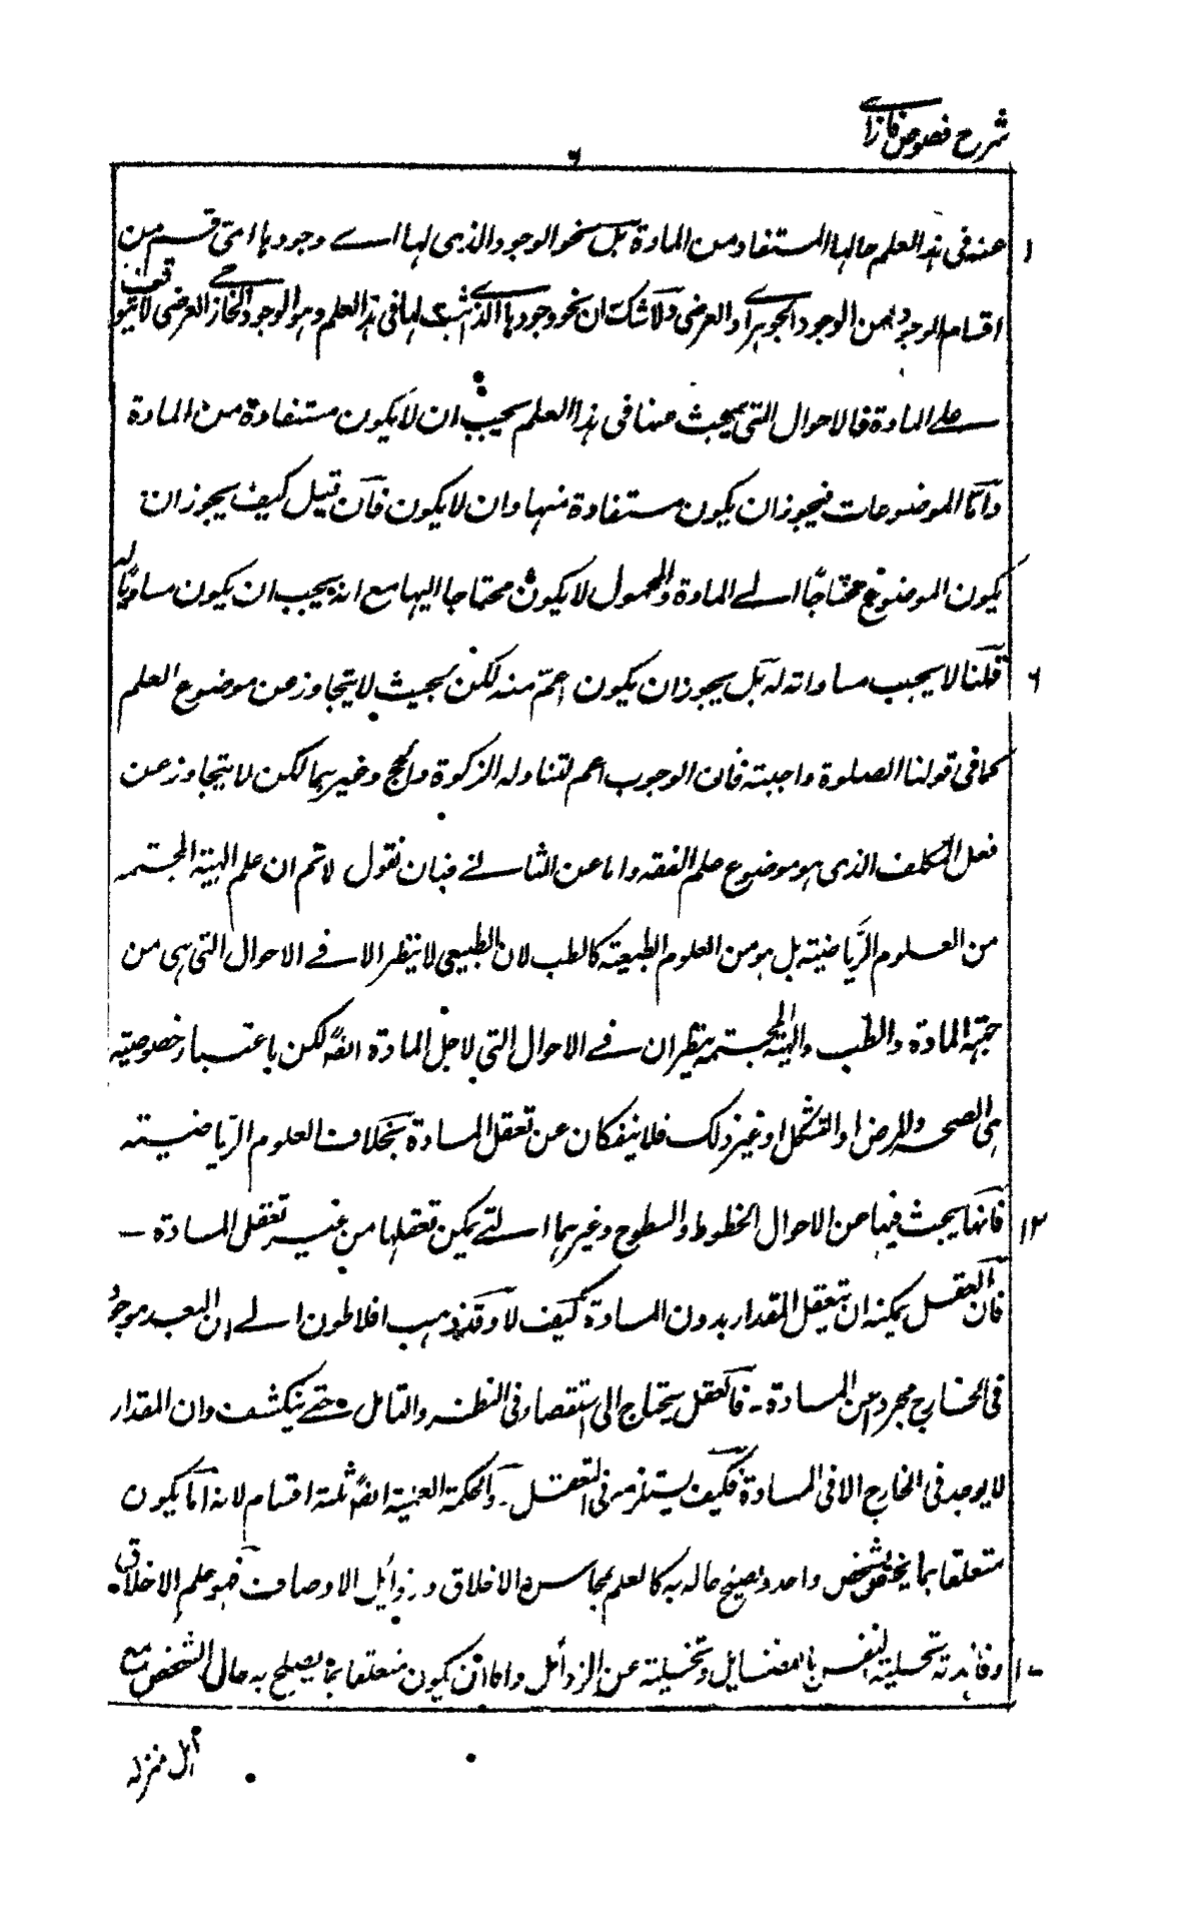 شرح فصوص فارابے
٦
عنه فى هذا العلم حالها المستفاد من المادة بل نحو الوجود الذى لها اے وجودها اى قسم من
اقسام الوجود امن الوجود الجوهرى او العرضى ولا شك ان نحو وجودها الذى ثبت لها فى هذا العلم وهو الوجود الخارجى العرضى لا يتوقف
على المادة فالاحوال التى يبحث عنها فى هذا العلم يجب ان لا يكون مستفادة من المادة
واما الموضوعات فيجوز ان يكون مستفادة منها وان لا يكون فان قيل كيف يجوز ان
يكون الموضوع محتاجًا الے المادة والمحمول لا يكون محتاجا اليها مع انه يجب ان يكون مساويًا له
٦ قلنا لا يجب مساواته له بل يجوز ان يكون اعمّ منه لكن بحيث لا يتجاوز عن موضوع العلم
كما فى قولنا الصلوة واجبة فان الوجوب اعم لتناوله الزكوة والحج وغيرهما لكن لا يتجاوز عن
فعل المكلف الذى هو موضوع علم الفقه واما عن الثانے فبان نقول لا نم ان علم الهيئة المجسمة
من العلوم الرّياضية بل هو من العلوم الطبيعية كالطب لان الطبيعى لا ينظر الا فے الاحوال التى هى من
جهة المادة والطب والهيئة المجسمة ينظران فے الاحوال التى لاجل المادة ايضًا لكن باعتبار خصوصية
هى الصحة والمرض او التشكل او غير ذلك فلا ينفكان عن تعقل المادة بخلاف العلوم الرّياضية
١٢ فانها يبحث فيها عن الاحوال الخطوط والسطوح وغيرهما التے يمكن تعقلها من غير تعقل المادة ۔
فان العقل يمكنه ان يتعقل المقدار بدون المادة كيف لا وقد ذهب افلاطون الے ان البعد موجود
فى الخارج مجرد عن المادة ۔ فالعقل يحتاج الى استقصاء فى النظر والتامل حتے ينكشف وان المقدار
لا يوجد فى الخارج الا فى المادة فكيف يستلزم فى التعقل ۔ والحكمة العملية ايضًا ثلثة اقسام لانه اما يكون
متعلقا بما يختص بشخص واحد ويصلح حاله به كالعلم بمحاسن الاخلاق ورذائل الاوصاف فهو علم الاخلاق
وفائدته تحلية النفس بالفضايل وتخلية عن الرذائل واما ان يكون متعلقا بما يصلح به حال الشخص مع
اہل منزله